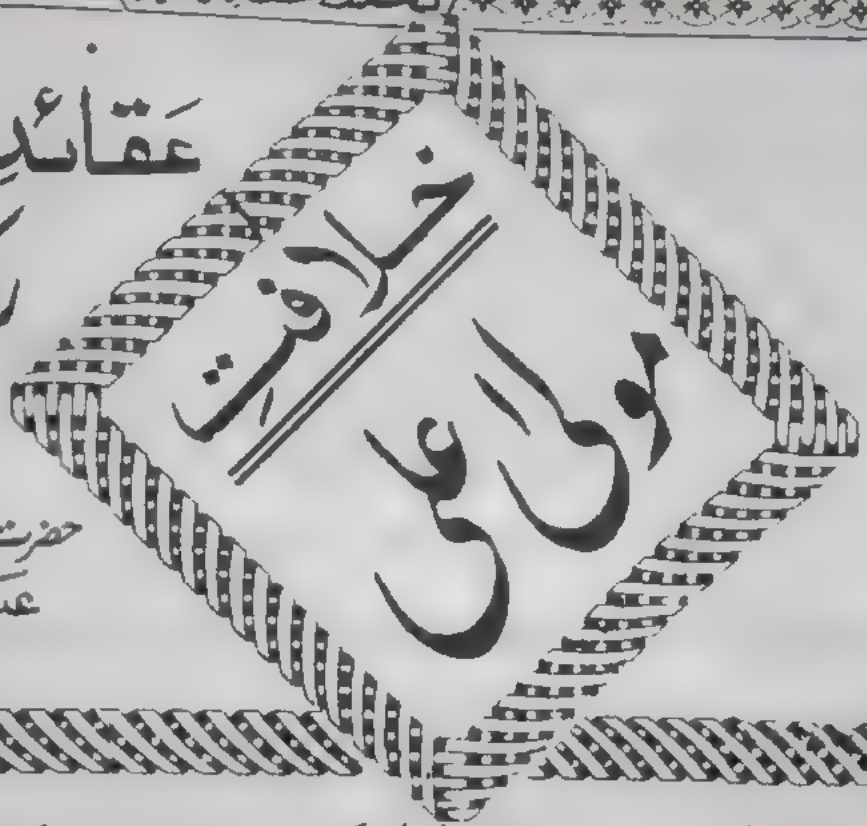 عَقائد
خلافت
مولیٰ علی
حضرت